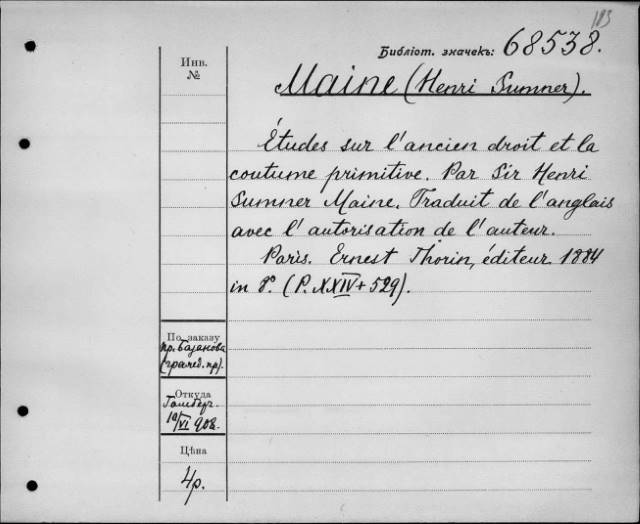 183
Библіот. значекъ: 68538.
Инв.
№
Maine (Henri Sumner).
Études sur l'ancien droit et la
coutume primitive. Par Sir Henri
Sumner Maine. Traduit de l'anglais
avec l'autorisation de l'auteur.
Paris. Ernest Thorin, éditeur 1884
in 8°. (P. XXIV + 529).
По заказу
пр. Базанова
(гражд. пр).
Откуда
10/VI 908.
Цѣна
4р.